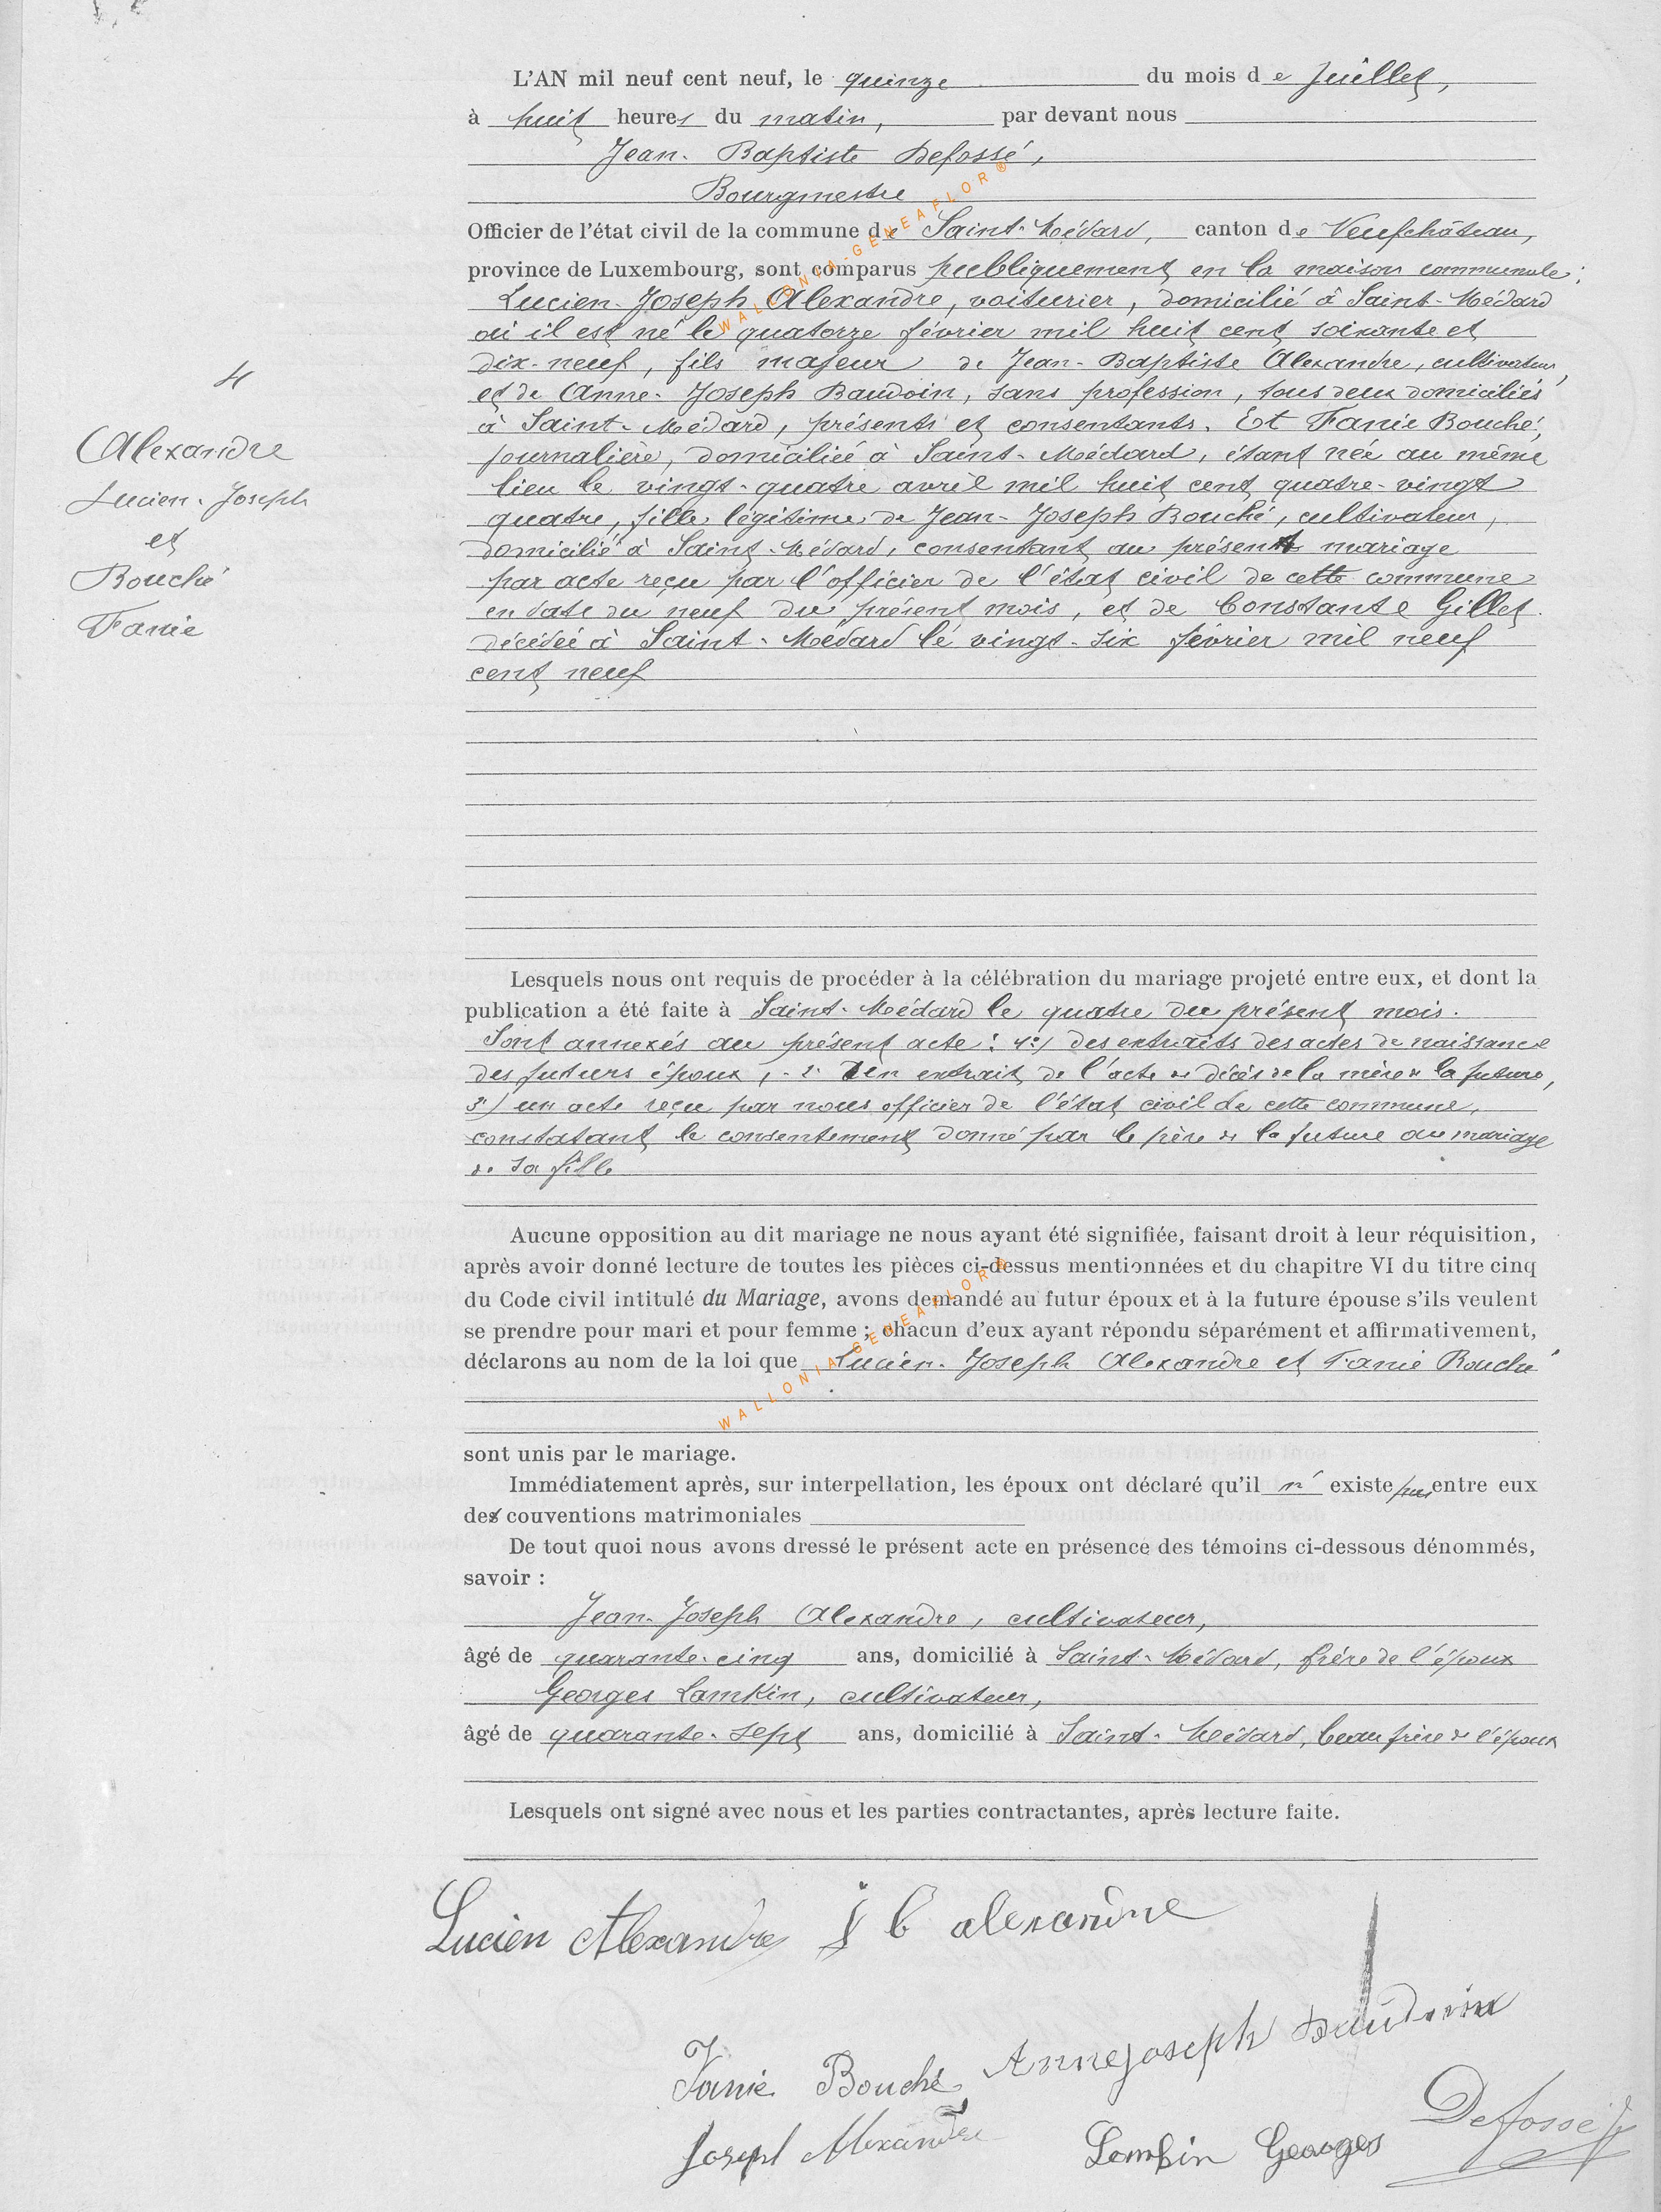 L'AN mil neuf cent neuf, le quinze du mois de Juillet,
à huit heures du matin, par devant nous
Jean-Baptiste Defossé,
Bourgmestre
Officier de l'état civil de la commune de Saint-Médard, canton de Neufchâteau,
province de Luxembourg, sont comparus publiquement en la maison communale :
Lucien-Joseph Alexandre, voiturier, domicilié à Saint-Médard
où il est né le quatorze février mil huit cent soixante et
dix-neuf, fils majeur de Jean-Baptiste Alexandre, cultivateur,
et de Anne-Joseph Baudoin, sans profession, tous deux domiciliés
à Saint-Médard, présents et consentants. Et Fanie Bouché,
journalière, domiciliée à Saint-Médard, étant née au même
lieu le vingt-quatre avril mil huit cent quatre-vingt
quatre, fille légitime de Jean-Joseph Bouché, cultivateur,
domicilié à Saint-Médard, consentant au présent mariage
par acte reçu par l'officier de l'état civil de cette commune
en date du neuf du présent mois, et de Constante Gillet
décédée à Saint-Médard le vingt-six février mil neuf
cent neuf
4
Alexandre
Lucien-Joseph
et
Bouché
Fanie
Lesquels nous ont requis de procéder à la célébration du mariage projeté entre eux, et dont la
publication a été faite à Saint-Médard le quatre du présent mois.
Sont annexés au présent acte : 1°/ des extraits des actes de naissance
des futurs époux, - 2° Un extrait de l'acte de décès de la mère de la future,
3°/ un acte reçu par nous officier de l'état civil de cette commune,
constatant le consentement donné par le père de la future au mariage
de sa fille
Aucune opposition au dit mariage ne nous ayant été signifiée, faisant droit à leur réquisition,
après avoir donné lecture de toutes les pièces ci-dessus mentionnées et du chapitre VI du titre cinq
du Code civil intitulé du Mariage, avons demandé au futur époux et à la future épouse s'ils veulent
se prendre pour mari et pour femme ; chacun d'eux ayant répondu séparément et affirmativement,
déclarons au nom de la loi que Lucien-Joseph Alexandre et Fanie Bouché
sont unis par le mariage.
Immédiatement après, sur interpellation, les époux ont déclaré qu'il n' existe pas entre eux
des couventions matrimoniales
De tout quoi nous avons dressé le présent acte en présence des témoins ci-dessous dénommés,
savoir :
Jean-Joseph Alexandre, cultivateur,
âgé de quarante-cinq ans, domicilié à Saint-Médard, frère de l'époux
Georges Lamkin, cultivateur,
âgé de quarante-sept ans, domicilié à Saint-Médard, beau frère de l'époux
Lesquels ont signé avec nous et les parties contractantes, après lecture faite.
Lucien Alexandre J b alexandre
Fanie Bouché Annejoseph Baudoin
Joseph Alexandre Lamkin Georges Deffossé
WALLONIA-GENEAFLOR®
WALLONIA-GENEAFLOR®